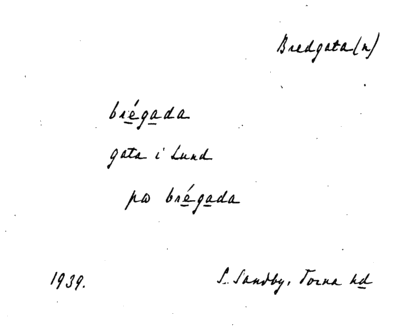 Bredgata(n)
brégada
gata i Lund
pɷ brégada
1939.
S. Sandby, Torna hd